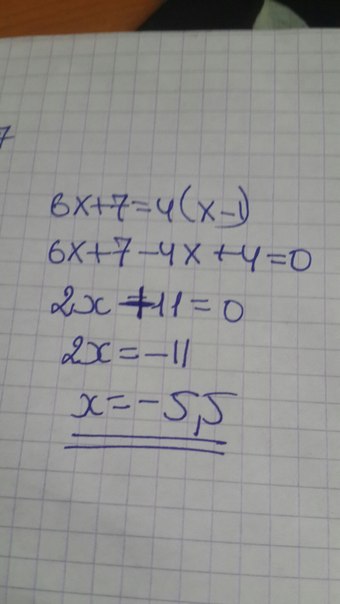 7
6x+7=4(x-1)
6x+7-4x+4=0
2x+11=0
2x=-11
x=-5,5